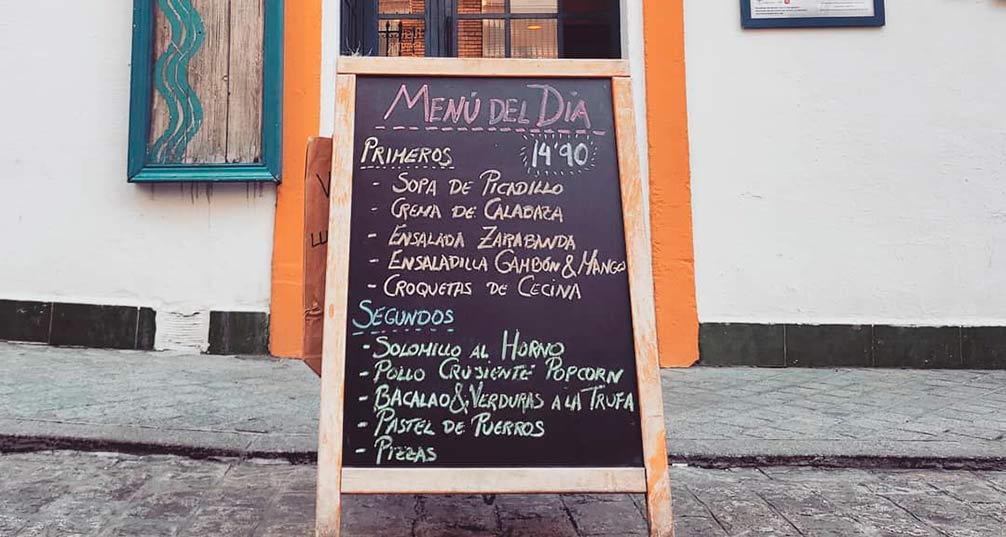 MENÚ DEL DÍA
PRIMEROS 14'90
- SOPA DE PICADILLO
- CREMA DE CALABAZA
- ENSALADA ZARABANDA
- ENSALADILLA GAMBÓN & MANGO
- CROQUETAS DE CECINA
SEGUNDOS
- SOLOMILLO AL HORNO
- POLLO CRUJIENTE POPCORN
- BACALAO & VERDURAS A LA TRUFA
- PASTEL DE PUERROS
- PIZZAS